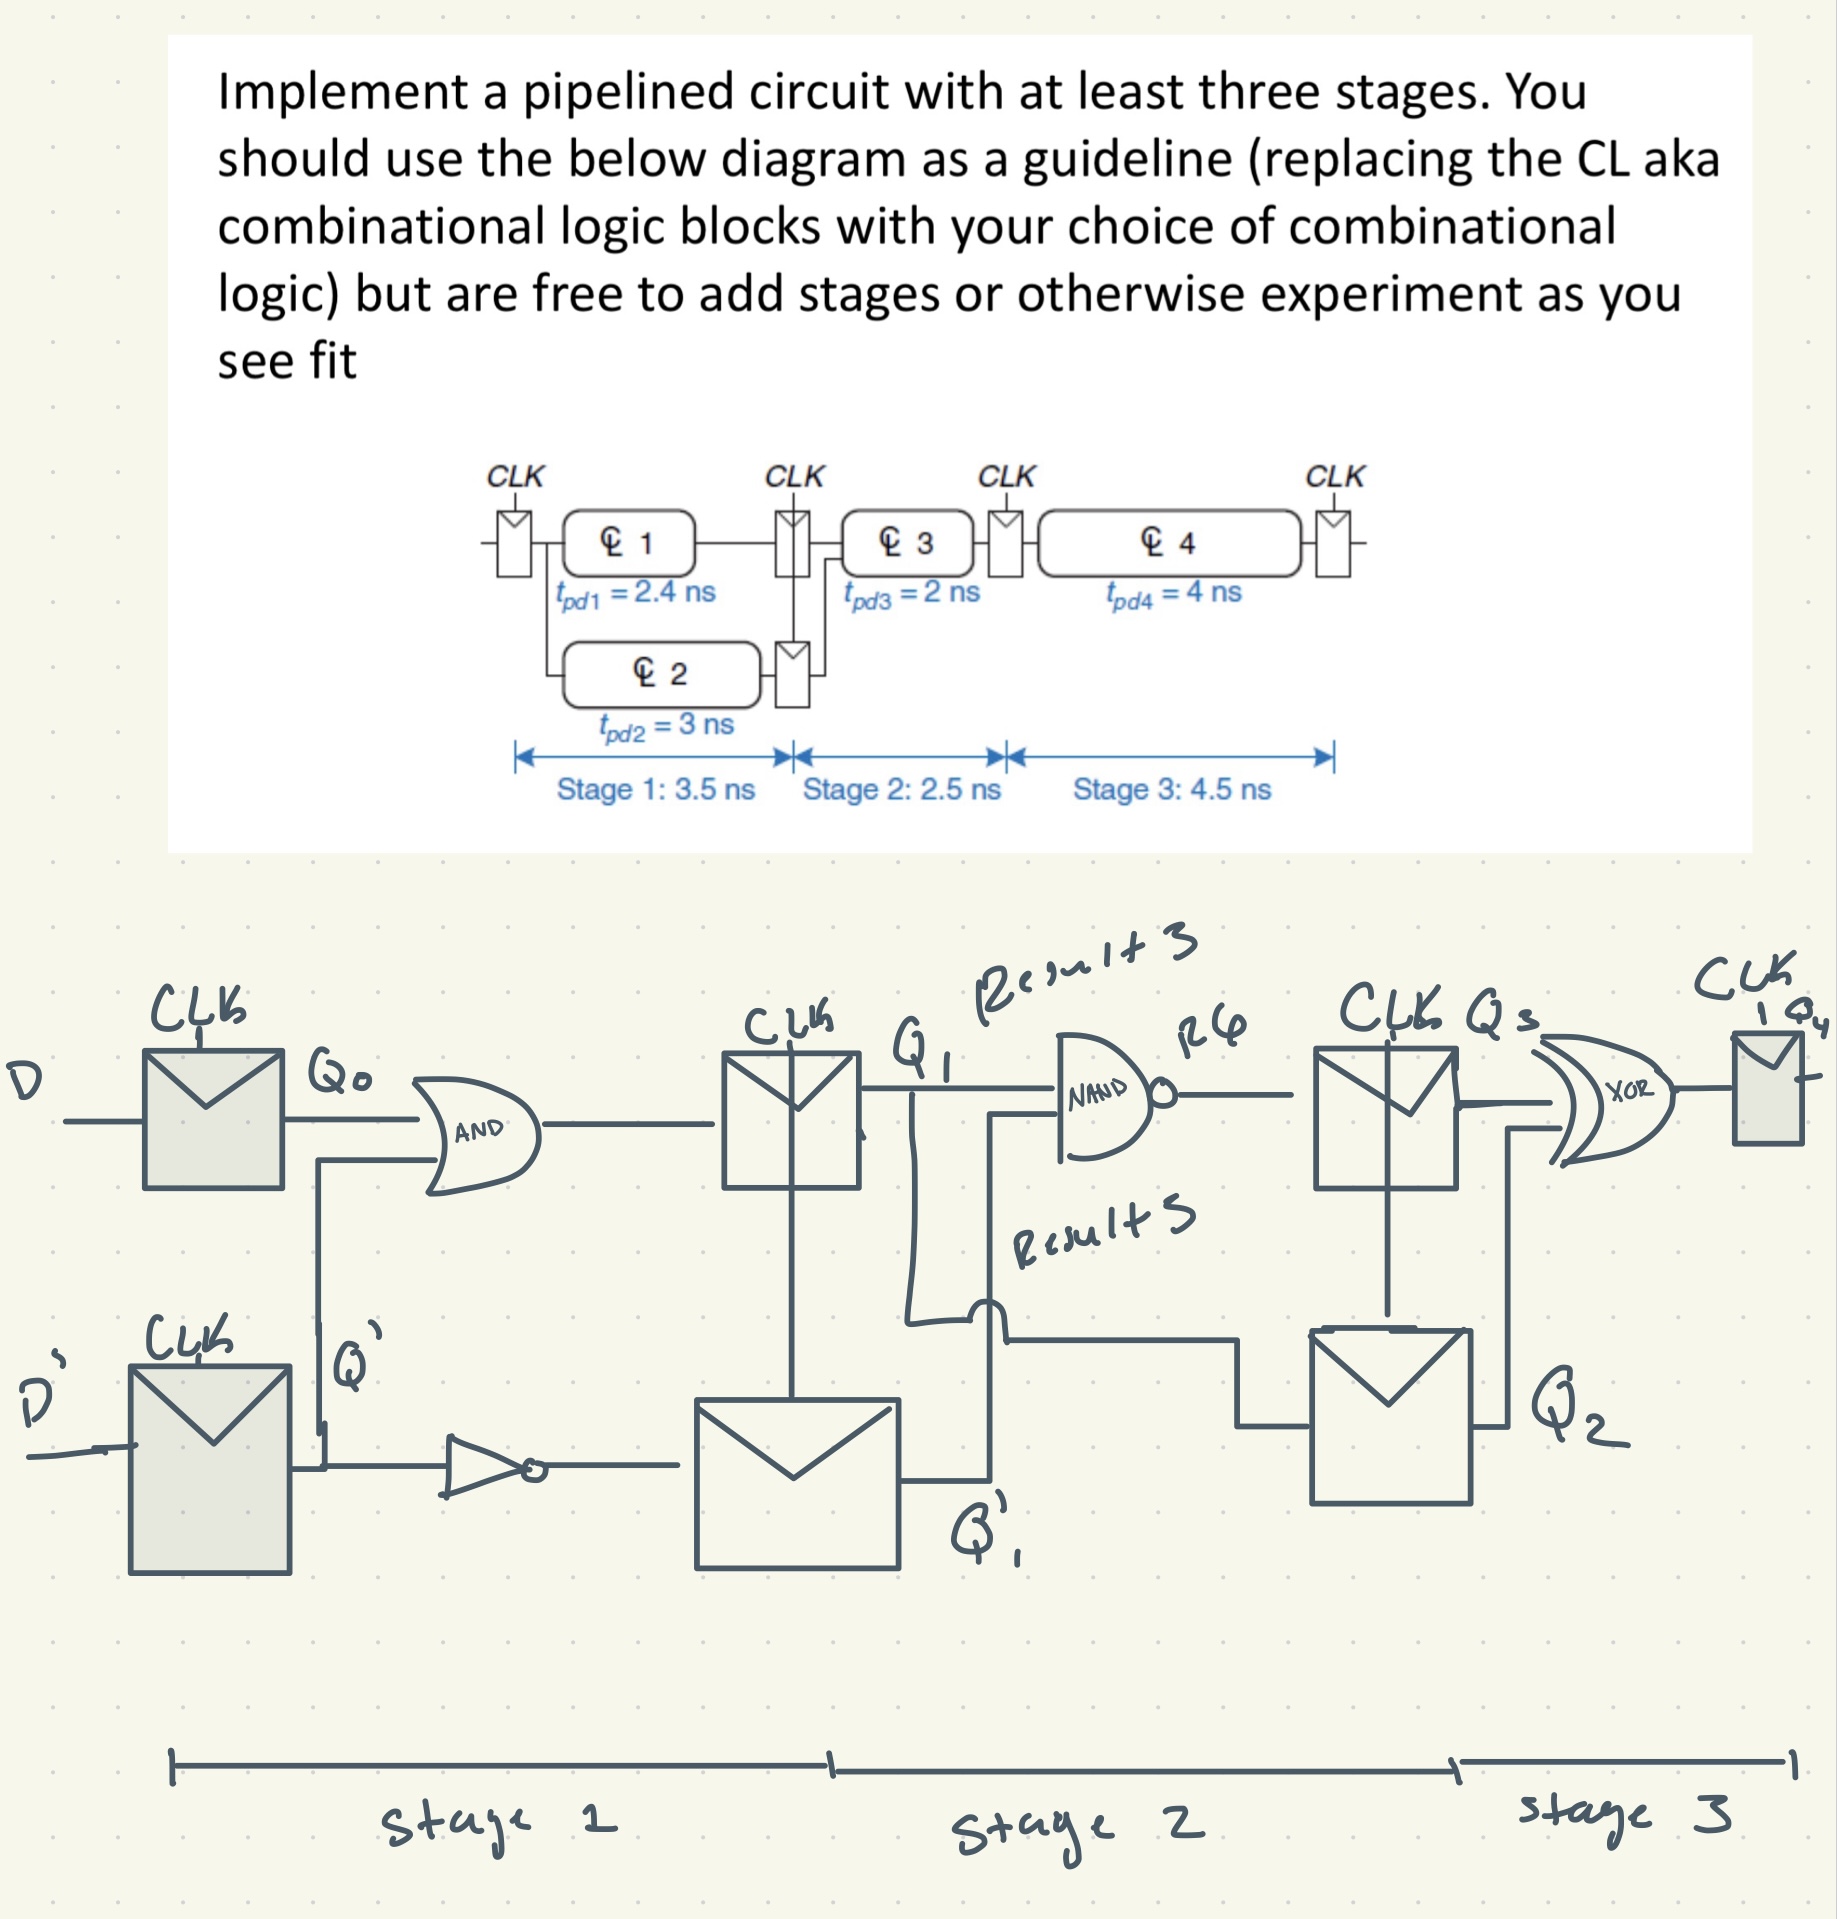 Implement a pipelined circuit with at least three stages. You
should use the below diagram as a guideline (replacing the CL aka
combinational logic blocks with your choice of combinational
logic) but are free to add stages or otherwise experiment as you
see fit
CLK CLK CLK CLK
CL 1 CL 3 CL 4
tpd1 = 2.4 ns tpd3 = 2 ns tpd4 = 4 ns
CL 2
tpd2 = 3 ns
Stage 1: 3.5 ns Stage 2: 2.5 ns Stage 3: 4.5 ns
Result 3
CLK CLK Q1 R6 CLK Q3 CLK Q4
D Q0 AND NAND XOR
Result 5
CLK
D' Q' Q2
Q'1
stage 1 stage 2 stage 3